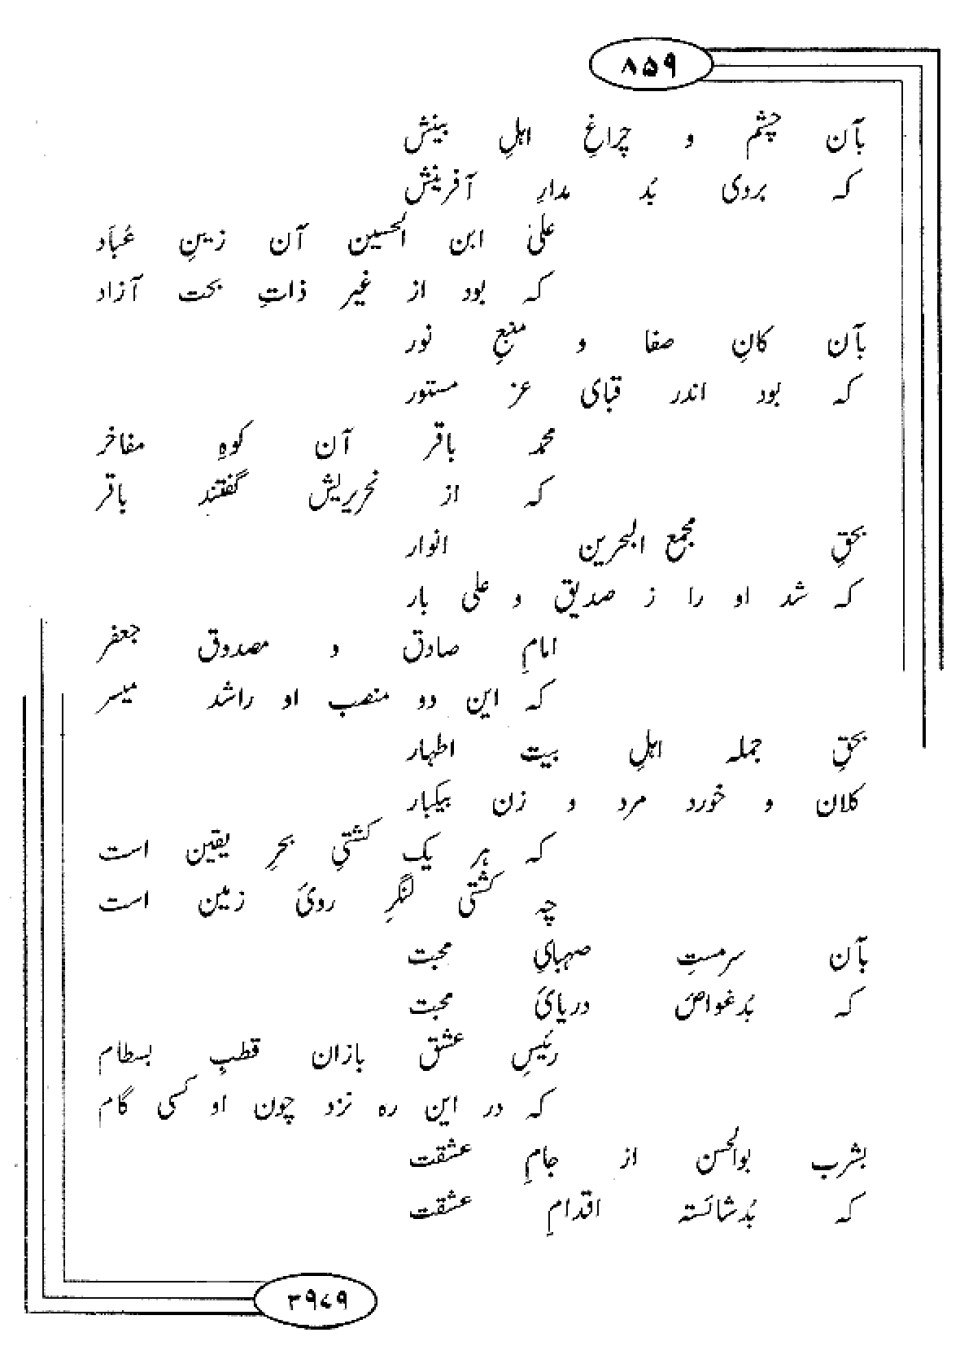 ۸۵۹
بآن چشم و چراغِ اہلِ بینش
کہ بروی بُد مدارِ آفرینش
علیٰ ابن الحسین آن زینِ عُبّاد
کہ بود از غیر ذاتِ بحت آزاد
بآن کانِ صفا و منبعِ نور
کہ بود اندر قبای عز مستور
محمد باقر آن کوہِ مفاخر
کہ از نحریریش گفتند باقر
بحقِ مجمع البحرین انوار
کہ شد او را ز صدیق و علی بار
امامِ صادق و مصدوق جعفر
کہ این دو منصب او راشد میسر
بحقِ جملہ اہلِ بیت اطہار
کلان و خورد مرد و زن بیکبار
کہ ہر یک کشتیِ بحرِ یقین است
چہ کشتی لنگرِ رویَ زمین است
بآن سرمستِ صہبایِ محبت
کہ بُد غواصَ دریایَ محبت
رئیسِ عشق بازان قطبِ بسطام
کہ در این رہ نزد چون او کسی گام
بشرب بوالحسن از جامِ عشقت
کہ بُد شائستہ اقدامِ عشقت
۳۹۷۹